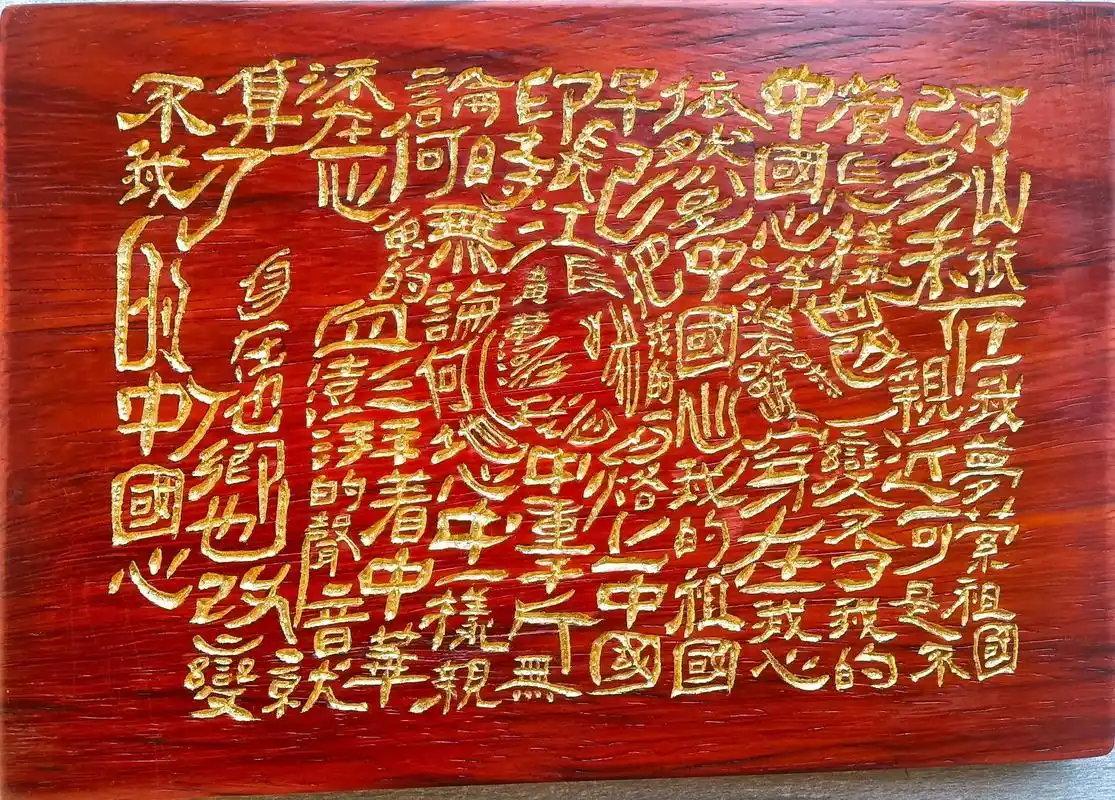 河山祇在我夢縈祖國
已多年未親近可是不
管怎樣也改變不了我的
中國心洋裝雖然穿在身我心
依然是中國心我的祖國
早已把我的一切烙上一中國
印長江長城黃山黃河在我心中重千斤無
論何時無論何地心中一樣親
流在心的血澎湃着中華
的聲音就
算身在他鄉也改變
不了我的中國心